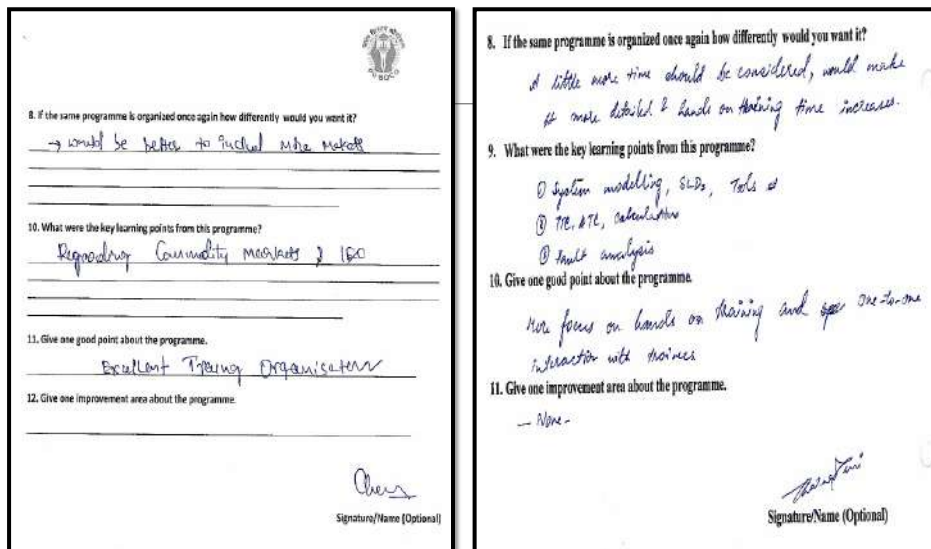 8. If the same programme is organized once again how differently would you want it?
→ would be better to includ more markets
10. What were the key learning points from this programme?
Regarding Commodity markets &
11. Give one good point about the programme.
Excellent Organisation
12. Give one improvement area about the programme.
Signature/Name (Optional)
8. If the same programme is organized once again how differently would you want it?
A little more time should be considered, would make
it more detailed & hands on training time increases.
9. What were the key learning points from this programme?
① System modelling, SLDs, Tools
② TTC, ATC, calculation
③ Fault analysis
10. Give one good point about the programme.
More focus on hands on training and one-to-one
interaction with trainees
11. Give one improvement area about the programme.
- None -
Signature/Name (Optional)